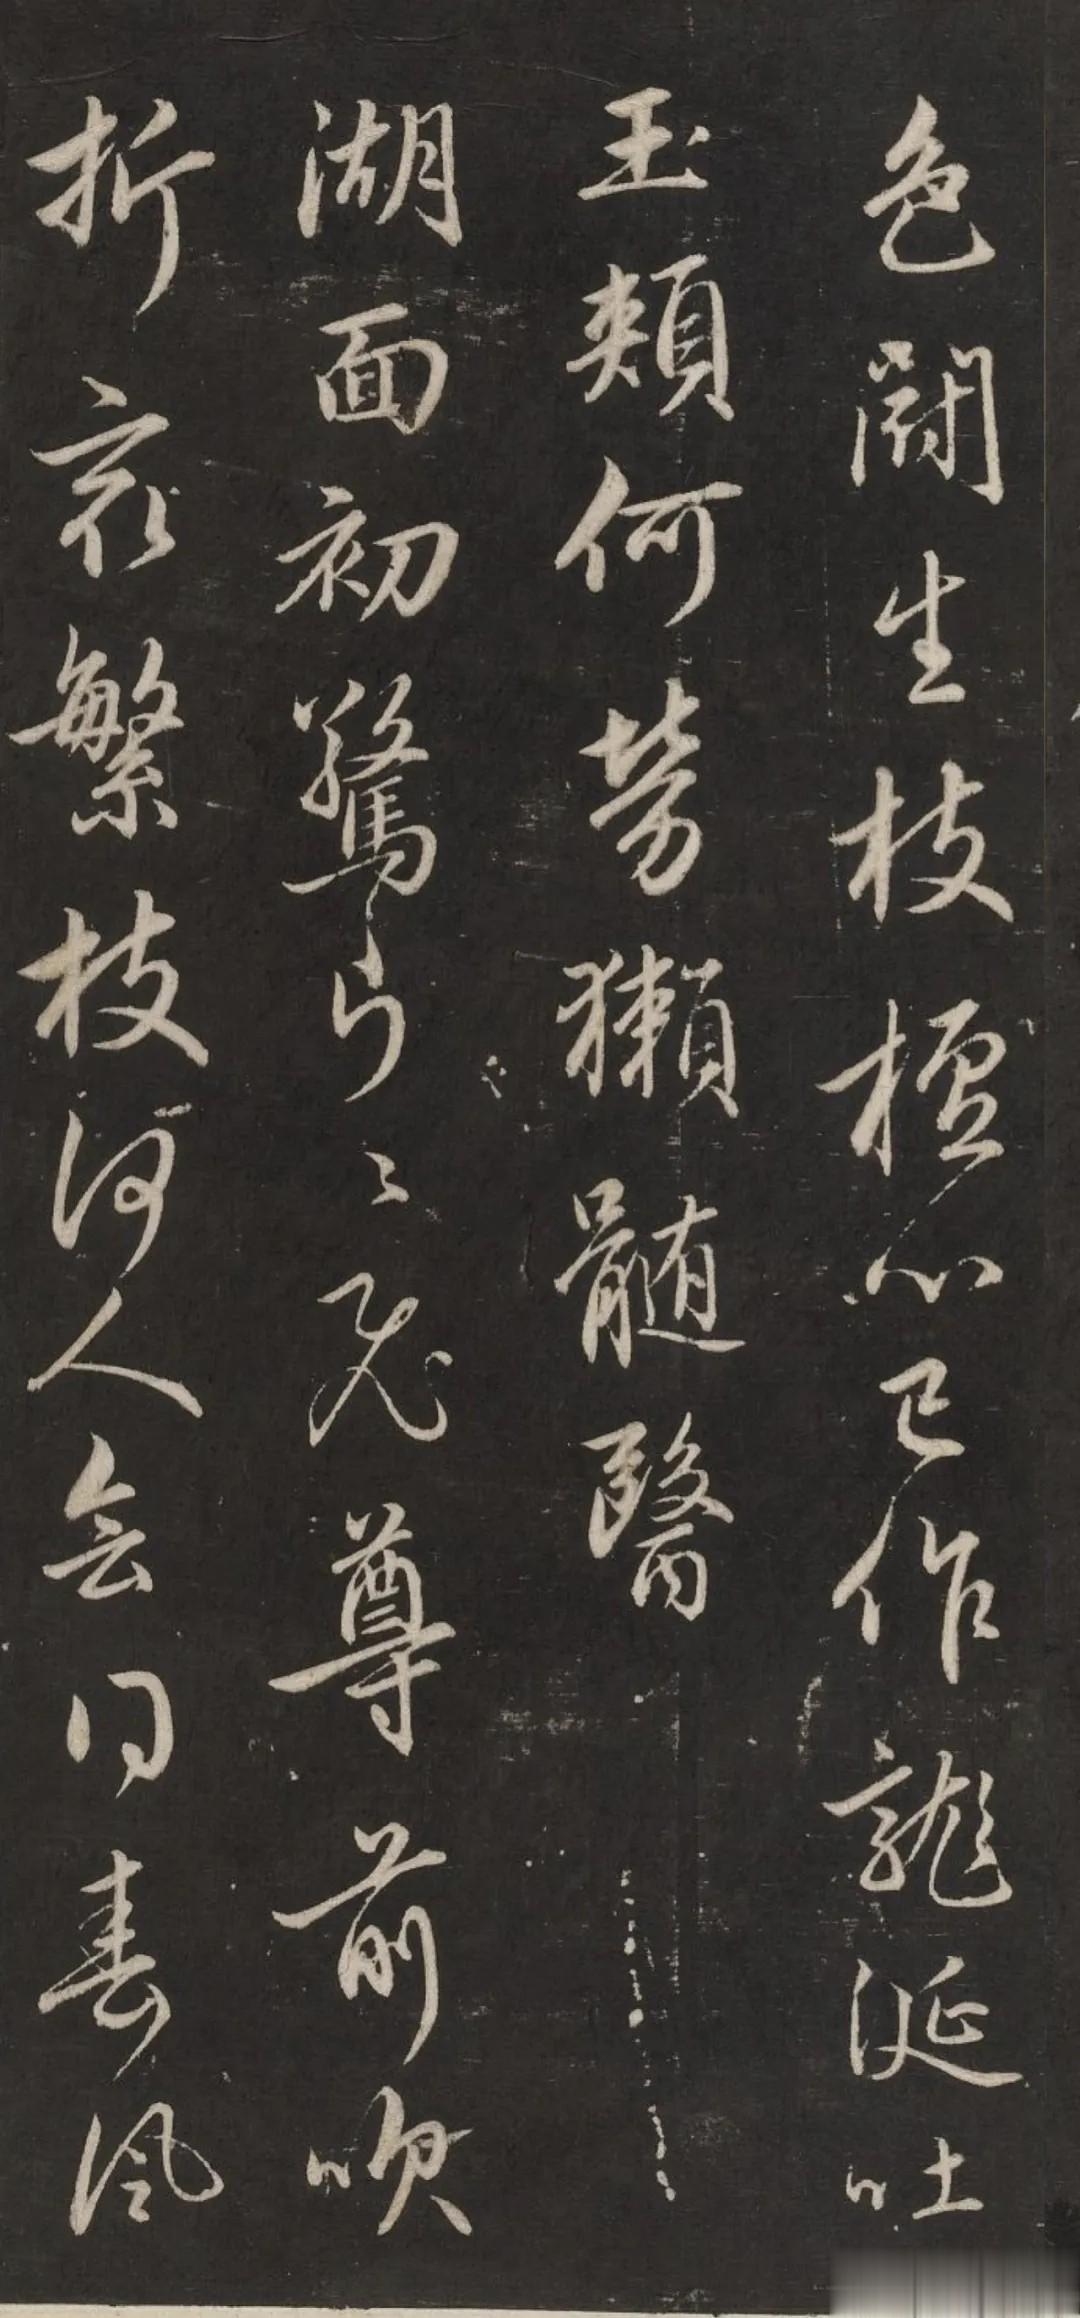 色鬪生枝檀心已作龍涎吐
玉頰何勞獺髓醫
湖面初驚片々飛尊前吹
折最繁枝何人會得春風